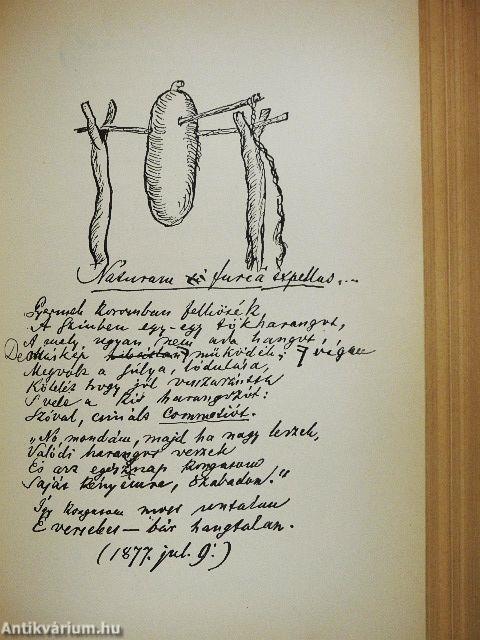 Naturam furca expellas...
Gyermek koromban felköték
A szinben egy-egy tökharangot,
A mely, ugyan nem ada hangot,
De máskép működék; vígan
Megvolt a súlya, lódulása,
Kötelét hogy jól visszarántsa
S vele a kis harangozót:
Szóval, csinált Commotiót.
„No, mondám, majd ha nagy leszek,
Valódi harangot veszek
És azt egész nap kongatom
Saját kényemre, szabadon!"
Így kongatom most untalan
E verseket — bár hangtalan.
(1877. jul. 9.)
Antikvárium.hu